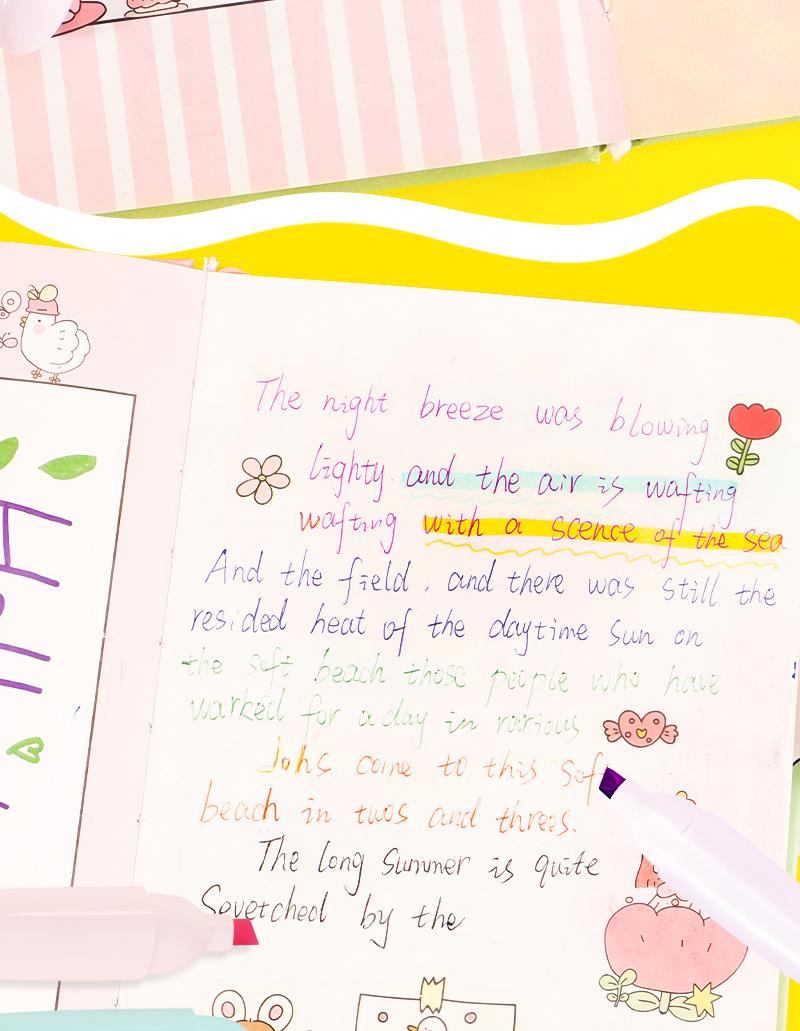 The night breeze was blowing
lighty. and the air is wafting
wafting with a scence of the sea
And the field, and there was still the
resided heat of the daytime sun on
the soft beach those people who have
warked for a day in rarious
Johs come to this soft
beach in twos and threes.
The long Summer is quite
Sovetched by the